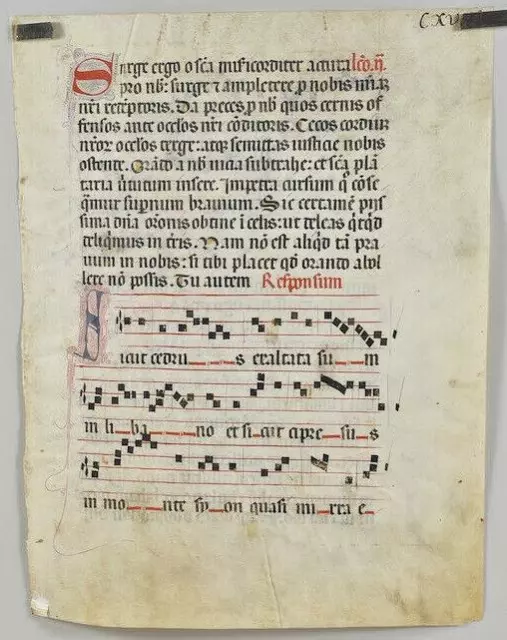 CXV
Surge ergo o sc̄a misericorditer actura lc̄o. ij.
pro nb̄: surge ⁊ amplectere p̱ nobis
nr̄i receptoris. Da preces p̱ nb̄ quos cernis of
fensos ante oc̄los nr̄i cōditoris. Cecos cordium
nr̄or oc̄los terge: atq; semitas iusticie nobis
ostente. a nb̄ subtrahe: et sc̄a plā
taria insere. Impetra cursum q̄
q̄mur supnum brauium. Sic certamē
sima dn̄a or̄onis obtine ī celis: ut
deliq̄mus in tr̄is. Nam nō est aliq̄d tā pra
uum in nobis: si tibi placet qd̄ orando abol
lere nō possis. Tu autem Responsum
Sicut cedru s exaltata su m
in li ba no et si cut cipre su s
in mo nte sy on quasi mi rra e